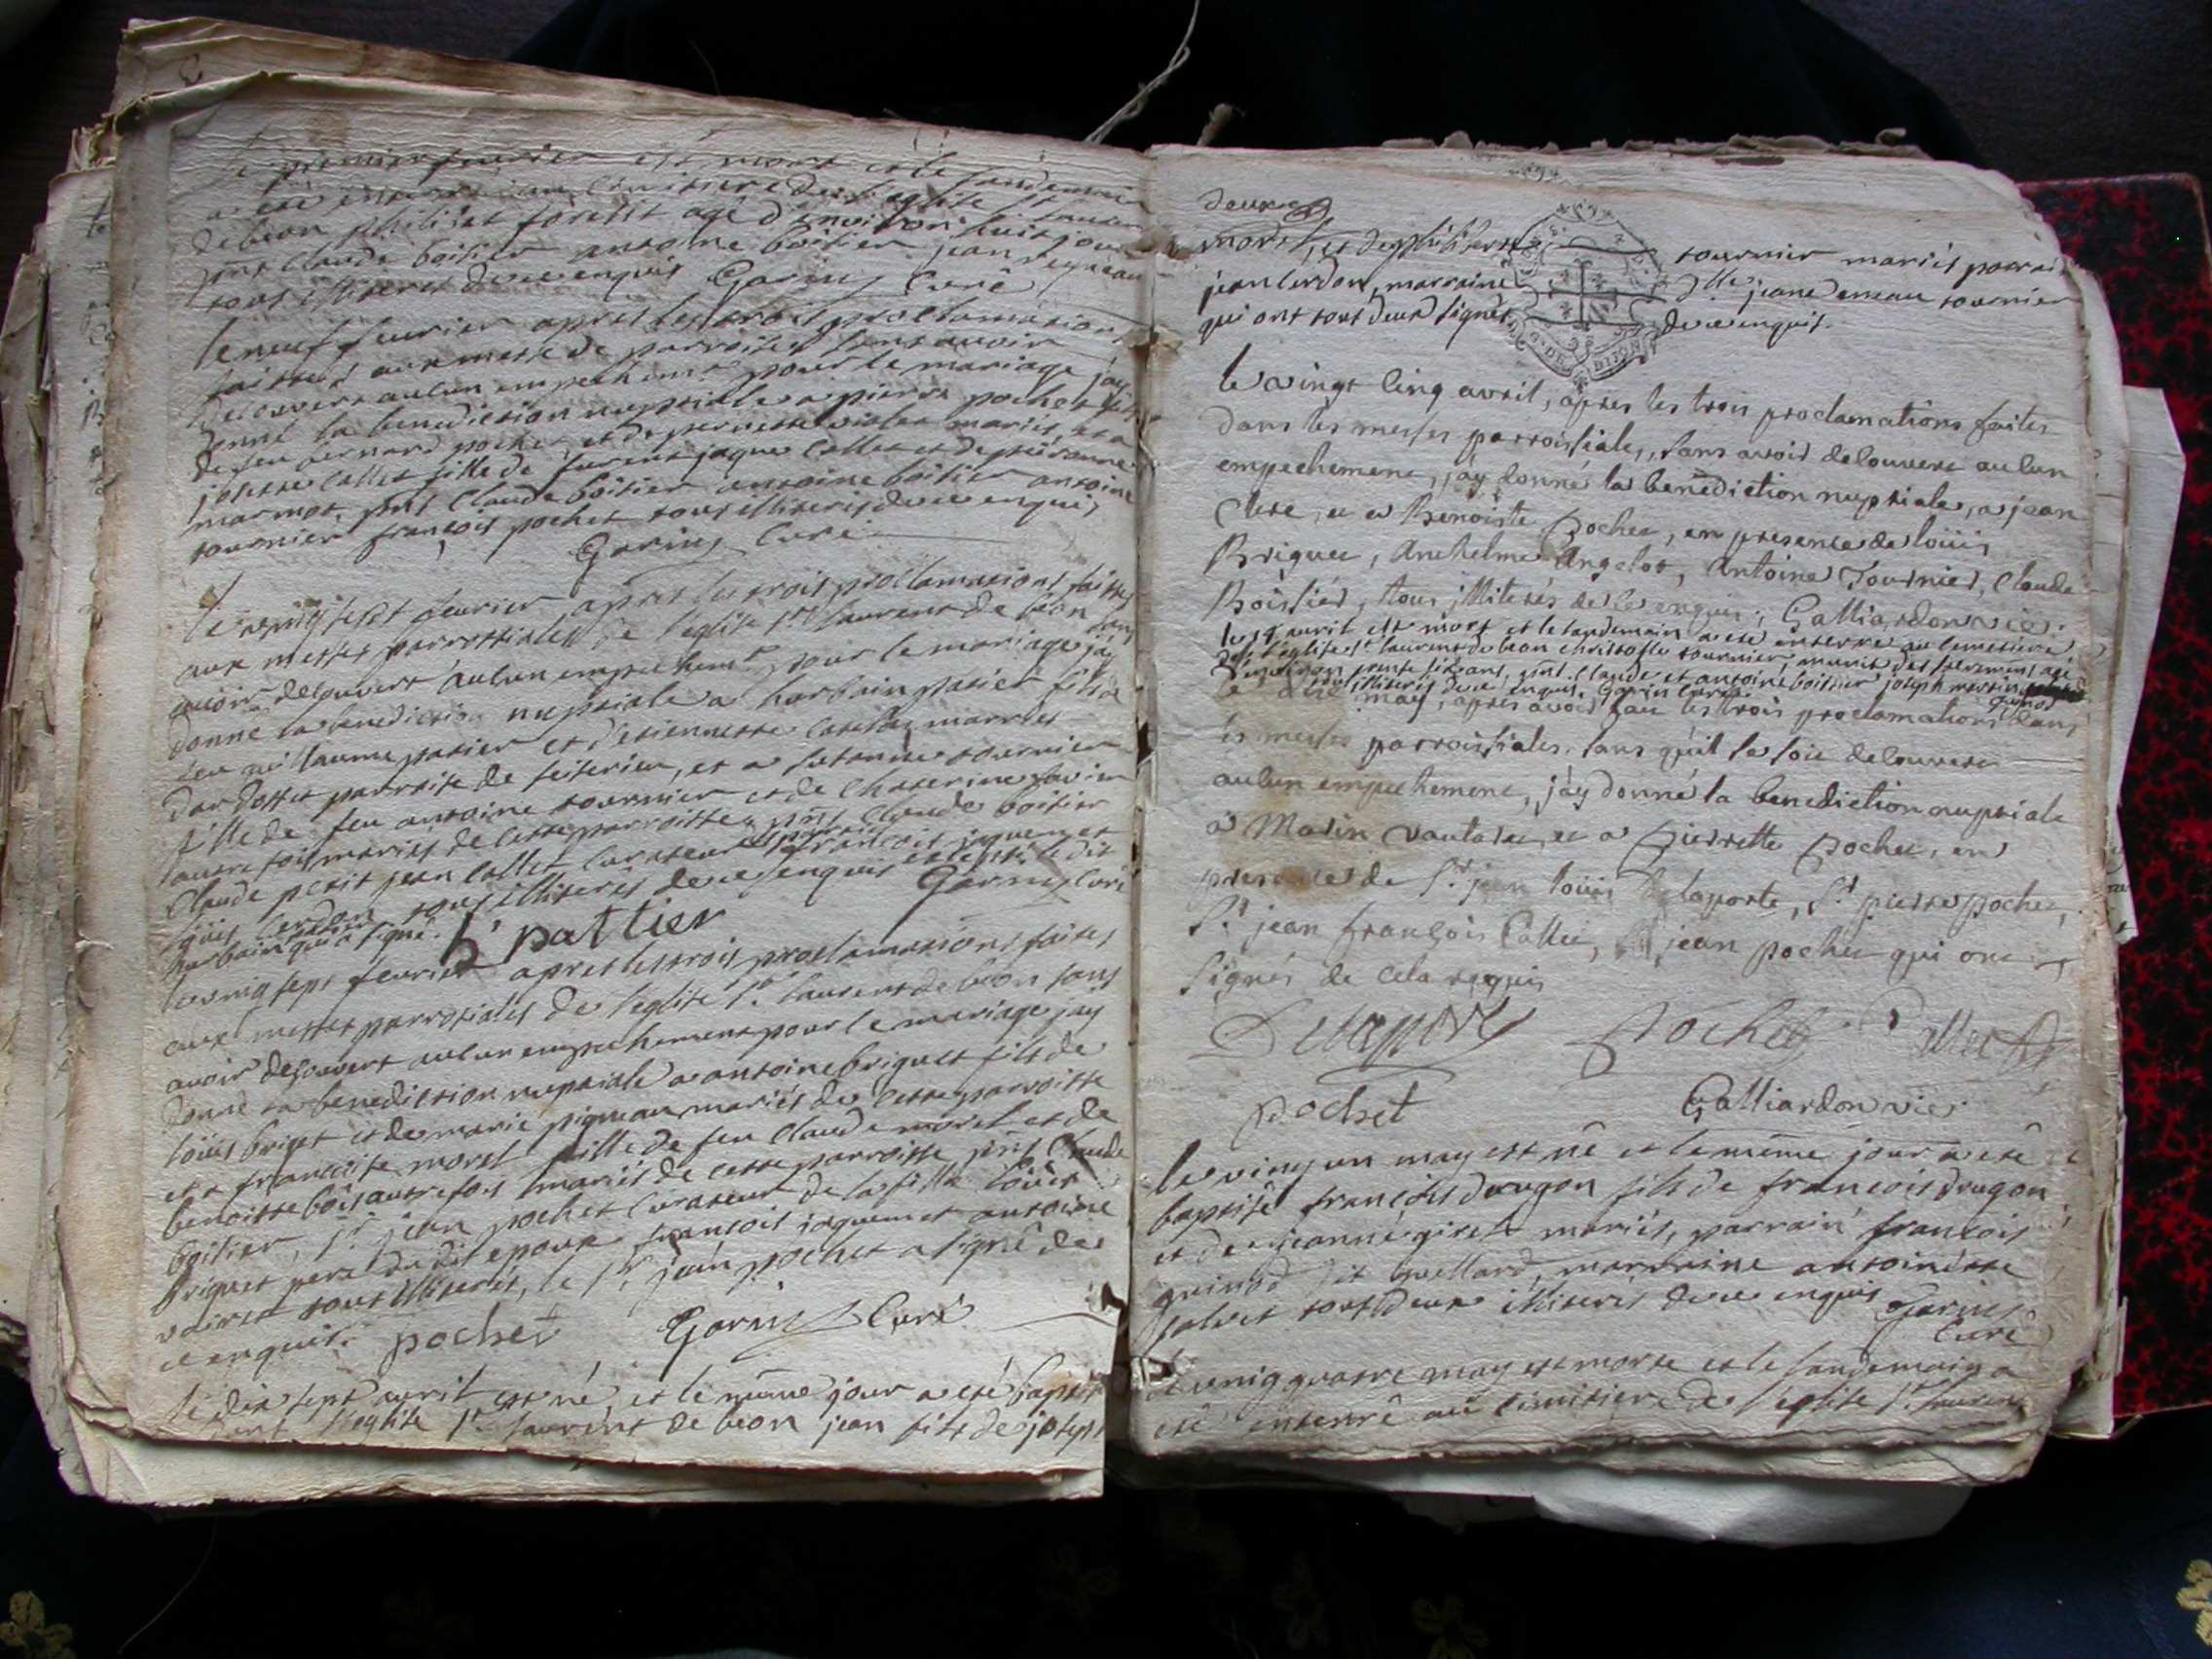 Le premier feurier est mort et le landemain
a eté enterré au cimitiere de l'eglise St laurent
de beon philibert forest agé d'environ huit jours
pnt Claude boitier antoine boitier jean
tous illiterés de ce enquis Garin Curé
le neuf feurier apres les trois proclamations
faittes aux messe de parroisse sans avoir
decouvert aucun empechemt pour le mariage jay
donné la benediction nuptiale a pierre pochet fils
de feu bernard pochet et de pernette violet mariés et a
josette collet fille de furent jaque Collet et de
marmot, pnts Claude boitier antoine boitier antoine
tournier françois pochet tous illiteris de ce enquis
Garin Curé
le vingt sept feurier apres les trois proclamations faittes
aux messes parrossiales de l'eglise St laurent de beon sans
auoir decouvert aucun empechemt pour le mariage jay
donné la benediction nuptiale a hurbain patier fils a
feu guillaume patier et d'etiennette mariés
parroisse de seiserieu, et a suzanne tournier
fille de feu antoine tournier et de Chaterine
autrefois mariés de cette parroisse pnts Claude boitier
Claude petit jean collet Curateur françois jiquemet
louis cerdon tous illiterés de ce enquis excepté le dit
hurbain qui a signé. Garin Curé
h pattier
le vingt sept feurier apres les trois proclamations faites
aux messes parrosiales de l'eglise St laurent de beon sans
avoir decouvert aucun empechement pour le mariage jay
donné la benediction nuptiale a antoine briquet fils de
louis briqet et de marie pigneau mariés de cette parroisse
et a francoise morel fille de feu Claude morel et de
benoitte bois autrefois mariés de cette parroisse pnt Claude
boitier, Sr jean pochet Curateur de la fille louis
briquet pere du dit epoux francois jiquemet antoine
voiret tous illiterés, le Sr jean pochet a signé de
ce enquis. pochet Garin Curé
le dix sept avril est né, et le même jour a eté baptisé
dans l'eglise St laurent de beon jean fils de joseph
deux
morel, et de philiberte tournier mariés parrain
jean cerdon, marraine Dlle jeane emeau tournier
qui ont tous deux signés de ce enquis.
le vingt cinq avril, apres les trois proclamations faites
dans les messes parroissiale, sans avoir decouvert aucun
empechement, j'ay donné la benediction nuptiale, a jean
Clere, et a Benoiste Pochet, en presence de loüis
Briquet, Anthelme Angelot, Antoine Tournier, Claude
Boissier, tous illiterés de ce enquis; Galliardon vic.
le 28 avril est mort et le landemain a eté enterré au cimetiere
de l'eglise St laurent de beon christofle tournier, munit des sacremens agé
d'environ trente six ans, pnt Claude et antoine boittier joseph martin
illiteris de ce enquis. Garin Curé
le may, apres avoir fait les trois proclamations dans
les messes parroissiales, sans qu'il se soit decouvere
aucun empechement, j'ay donné la benediction nuptiale
a Marin Vautaret, et a Pierrette Pochet, en
presence de Sr jean loüis Delaporte, Sr pierre pochet,
Sr jean françois Callet, jean pochet qui ont
signés de cela requis
Delaporte Pochet Callet
pochet Galliardon vic:
le vingt un may est né et le même jour a eté
baptisé francois dragon fils de francois dragon
et de jeanne giret mariés, parrain francois
guinod dit mellard marraine antoinette
salvet tous deux illiteris de ce enquis Garin
Curé
le vingt quatre may est morte et le landemain a
eté enterré au cimitiere de l'eglise St laurent